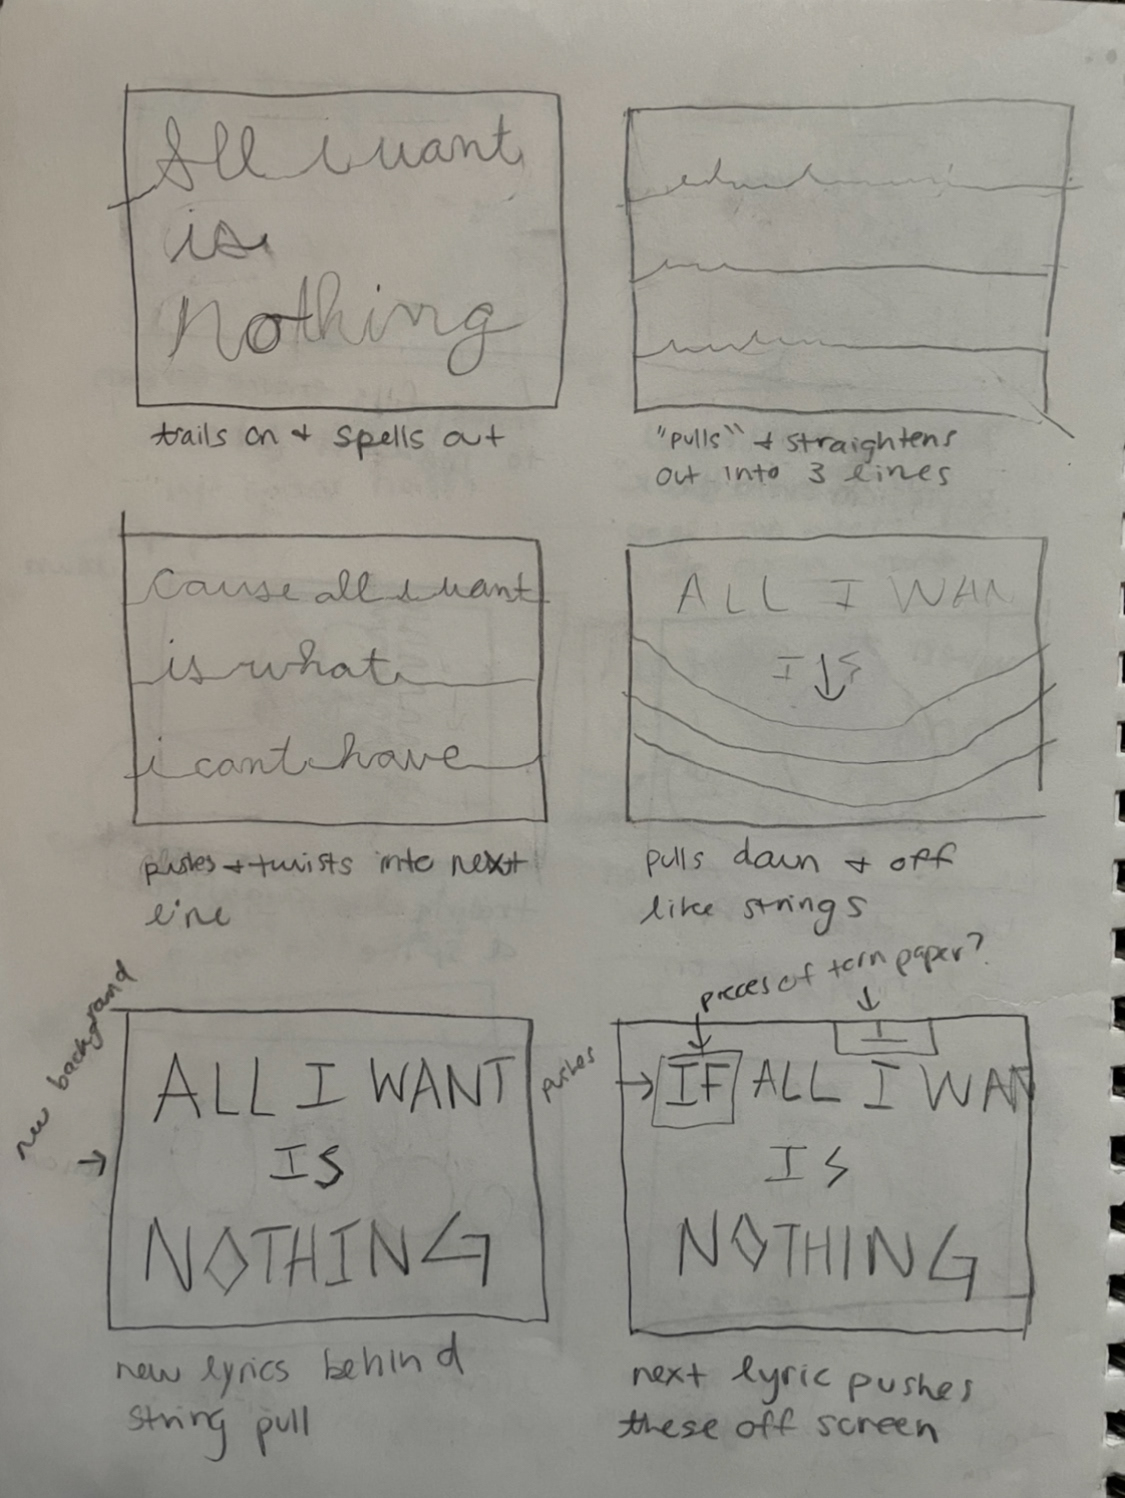 All i want
is
Nothing
trails on + spells out
"pulls" + straightens
out into 3 lines
Cause all i want
is what
i cant have
pushes + twists into next
line
ALL I WAN
IS
pulls down + off
like strings
new background
ALL I WANT
IS
NOTHING
new lyrics behind
string pull
pieces of torn paper?
pushes
IF ALL I WAN
I
IS
NOTHING
next lyric pushes
these off screen